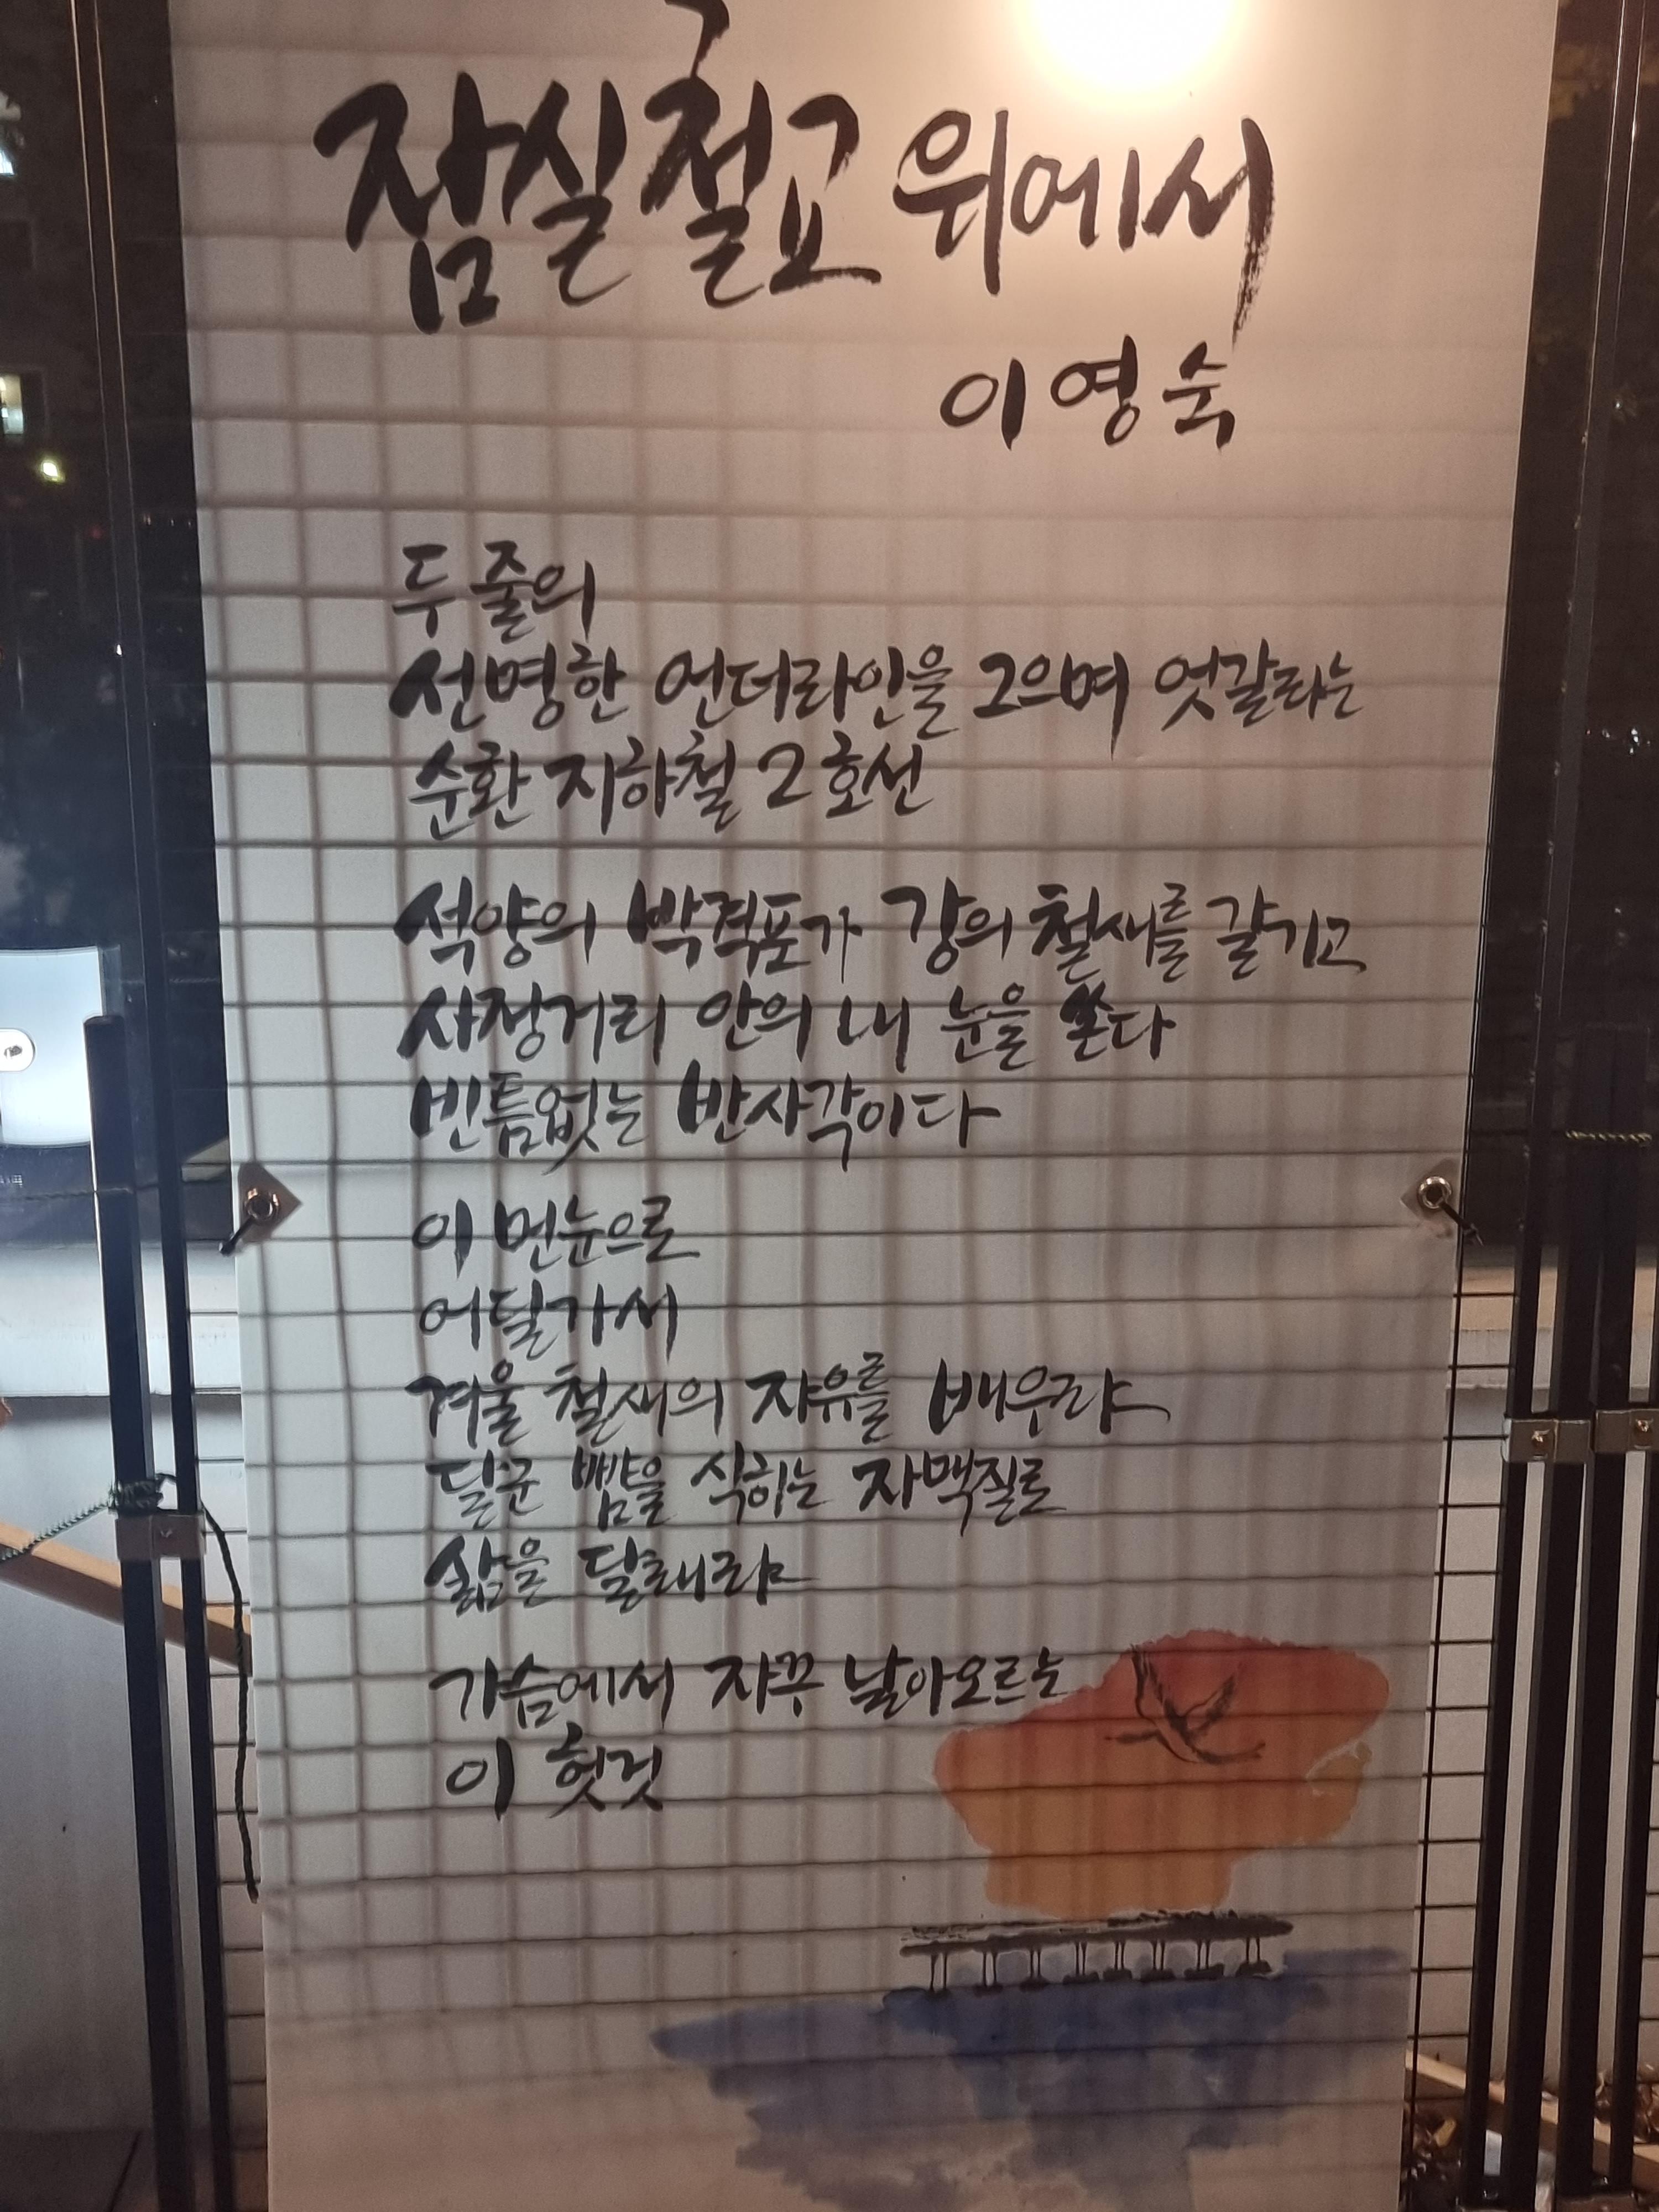 잠실철교 위에서
이영숙
두 줄의
선명한 언더라인을 그으며 엇갈리는
순환 지하철 2호선
석양의 박격포가 강의 철새를 갈기고
사정거리 안의 내 눈을 쏜다
빈틈없는 반사각이다
이 먼눈으로
어딜가서
겨울 철새의 자유를 배우랴
달군 뺨을 식히는 자맥질로
삶을 달래랴
가슴에서 자꾸 날아오르는
이 헛것